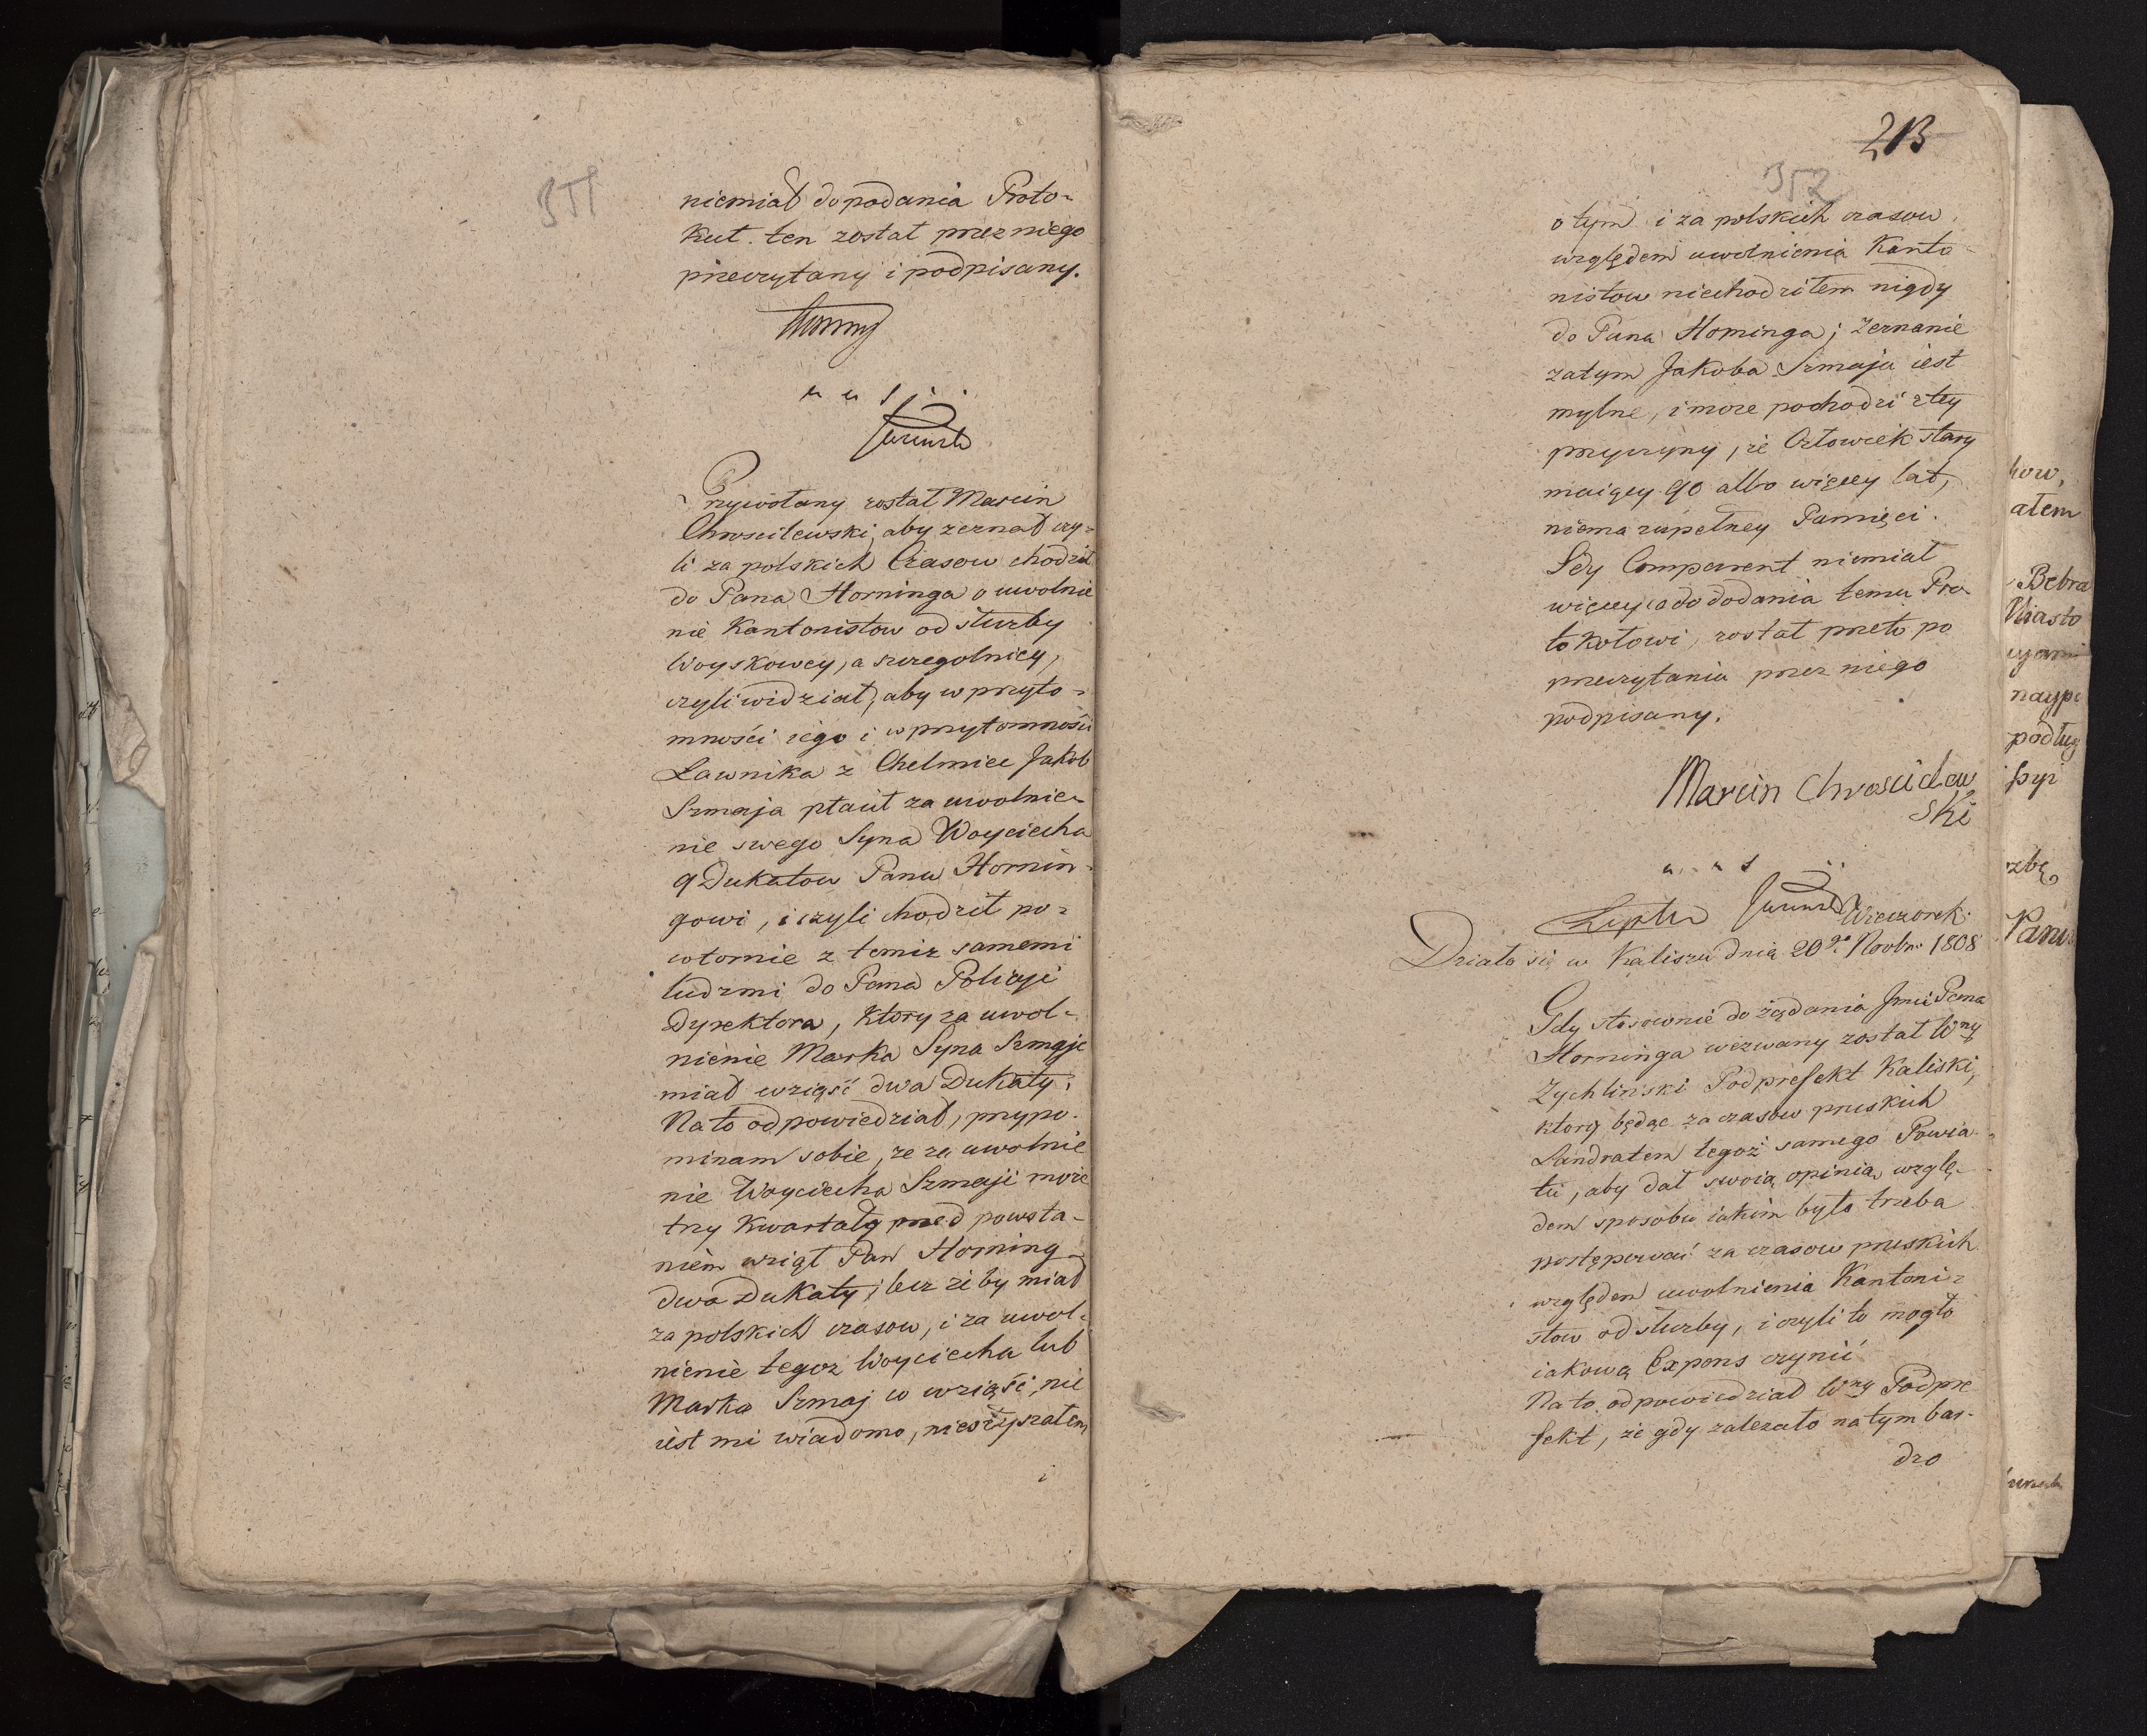 351
niemiał do podania Proto-
kuł. ten został przez niego
przeczytany i podpisany.
Horning
a u s
Przywołany został Marcin
Chroscilewski, aby zeznał czy-
li za polskich Czasow chodził
do Pana Horninga o uwolnie
nie Kantonistow od służby
Woyskowey, a szczegolniey,
czyli widział, aby w przyto-
mności iego i w przytomności
Ławnika z Chelmice Jakob
Szmaja płacił za uwolnie-
nie swego Syna Woyciecha
9 Dukatow Panu Hornin-
gowi, i czyli chodził po-
wtornie z temiz samemi
ludzmi do Pana Policyi
Dyrektora, ktory za uwol-
nienie Marka Syna Szmaje
miał wziąść dwa Dukaty.
Na to odpowiedział, przypo-
minam sobie, ze za uwolnie
nie Woyciecha Szmaji może
trzy Kwartały przed powsta-
niem wziął Pan Horning
dwa Dukaty, lecz żeby miał
za polskich czasow, i za uwol-
nienie tegoz Woyciecha lub
Marka Szmaj co wziąść, nie
iest mi wiadomo, niesłyszałem
i
213
352
o tym i za polskich czasow
względem uwolnienia Kanto-
nistow niechodziłem nigdy
do Pana Horninga; zeznanie
zatym Jakoba Szmaja iest
mylne, i może pochodzi z tey
przyczyny, że Człowiek stary
maiący 90 albo więcey lat,
niema zupełney Pamięci.
Gdy Comparent niemiał
więcey co do dodania temu Pro-
tokołowi, został przeto po
przeczytaniu przez niego
podpisany.
Marcin Chroscilew
ski
a u s
Wieczorek
Działo się w Kaliszu dnia 20go Novbr. 1808
Gdy stosownie do żądania Jmci Pana
Horninga wezwany został Wny
Zychliński Podprefekt Kaliski,
ktory będąc za czasow pruskich
Landratem tegoż samego Powia-
tu, aby dał swoią opinią wzglę-
dem sposobu iakim było trzeba
postępować za czasow pruskich
względem uwolnienia Kantoni-
stow od służby, i czyli to mogło
iakową Expens czynić
Na to odpowiedział Wny Podpre-
fekt, że gdy zalezało na tym bar-
dzo
how,
ałem
Bebra
Miasto
naype
podług
rzbę
Panu